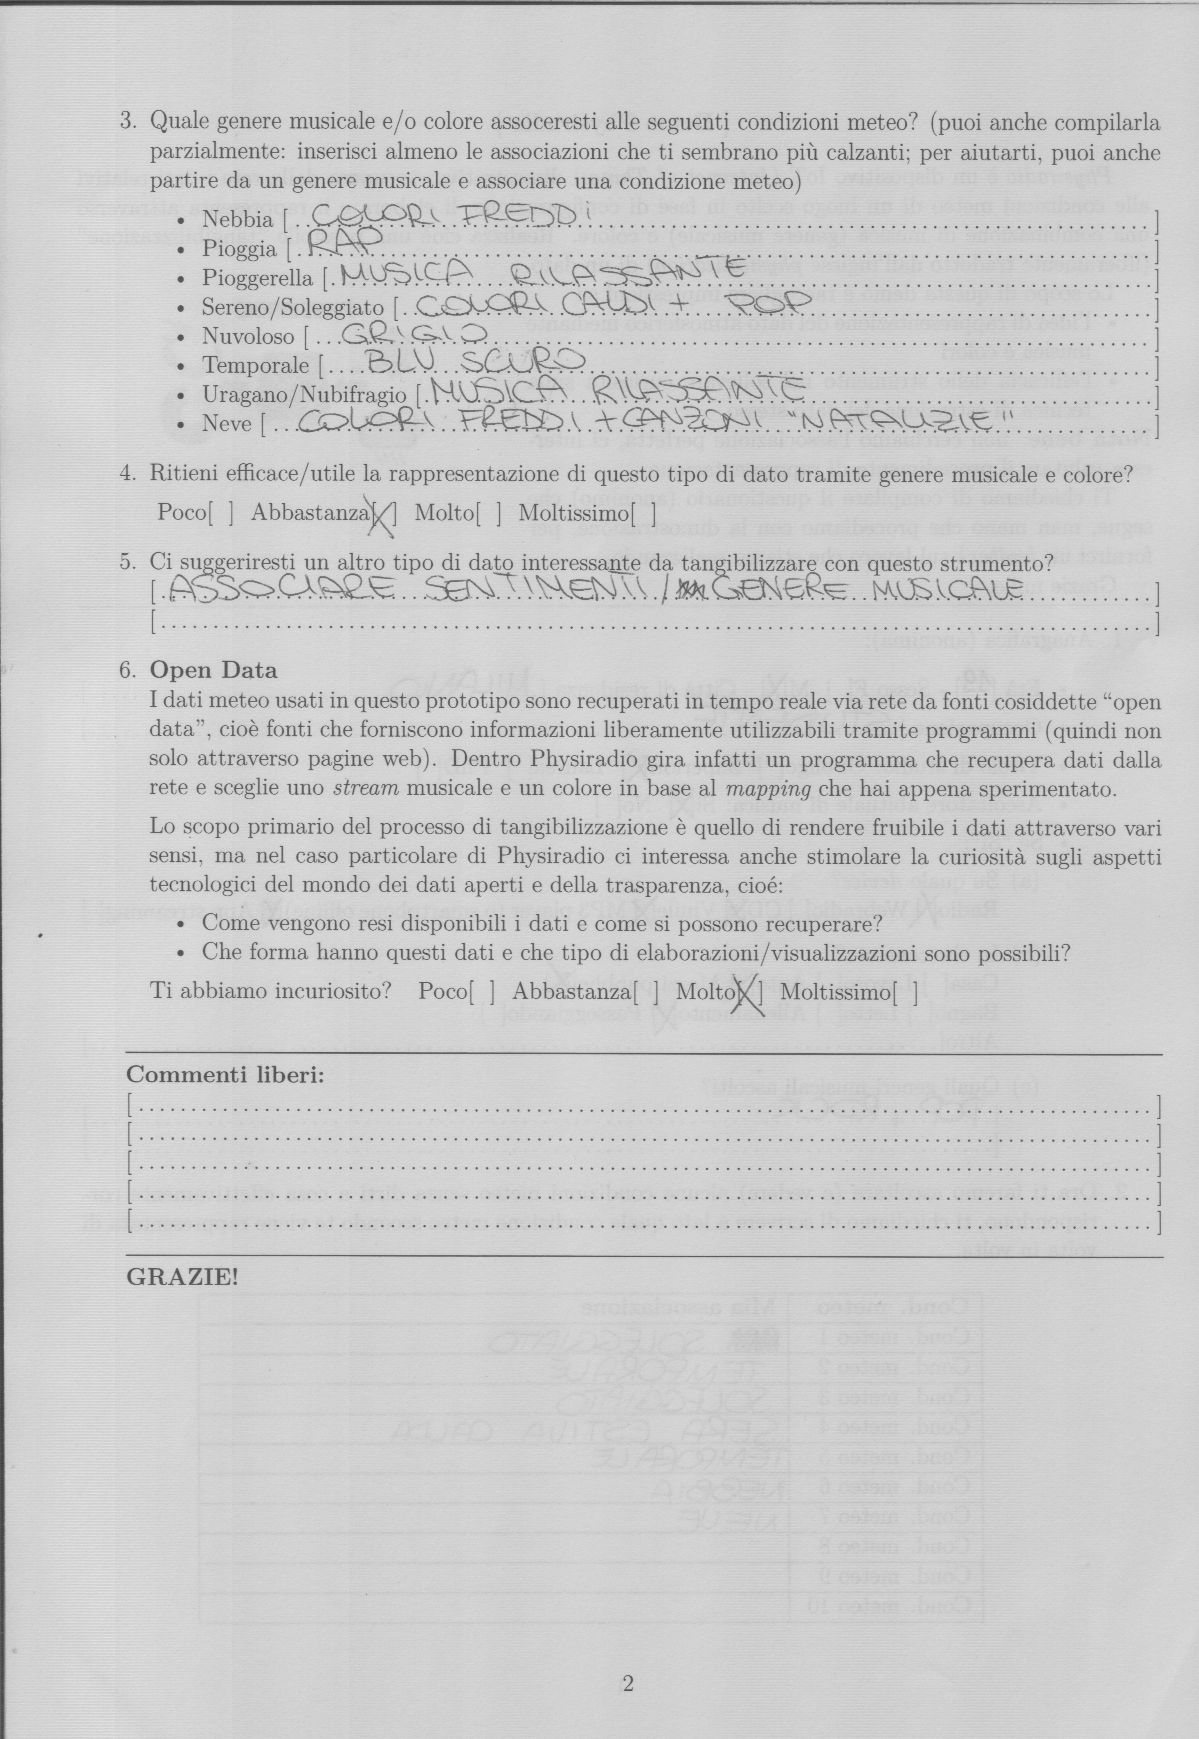 3. Quale genere musicale e/o colore assoceresti alle seguenti condizioni meteo? (puoi anche compilarla
parzialmente: inserisci almeno le associazioni che ti sembrano più calzanti; per aiutarti, puoi anche
partire da un genere musicale e associare una condizione meteo)
• Nebbia [ COLORI FREDDI ]
• Pioggia [ RAP ]
• Pioggerella [ MUSICA RILASSANTE ]
• Sereno/Soleggiato [ COLORI CALDI + POP ]
• Nuvoloso [ GRIGIO ]
• Temporale [ BLU SCURO ]
• Uragano/Nubifragio [ MUSICA RILASSANTE ]
• Neve [ COLORI FREDDI + CANZONI "NATALIZIE" ]
4. Ritieni efficace/utile la rappresentazione di questo tipo di dato tramite genere musicale e colore?
Poco[ ] Abbastanza[X] Molto[ ] Moltissimo[ ]
5. Ci suggeriresti un altro tipo di dato interessante da tangibilizzare con questo strumento?
[ ASSOCIARE SENTIMENTI / GENERE MUSICALE ]
[ ]
6. Open Data
I dati meteo usati in questo prototipo sono recuperati in tempo reale via rete da fonti cosiddette “open
data”, cioè fonti che forniscono informazioni liberamente utilizzabili tramite programmi (quindi non
solo attraverso pagine web). Dentro Physiradio gira infatti un programma che recupera dati dalla
rete e sceglie uno stream musicale e un colore in base al mapping che hai appena sperimentato.
Lo scopo primario del processo di tangibilizzazione è quello di rendere fruibile i dati attraverso vari
sensi, ma nel caso particolare di Physiradio ci interessa anche stimolare la curiosità sugli aspetti
tecnologici del mondo dei dati aperti e della trasparenza, cioé:
• Come vengono resi disponibili i dati e come si possono recuperare?
• Che forma hanno questi dati e che tipo di elaborazioni/visualizzazioni sono possibili?
Ti abbiamo incuriosito? Poco[ ] Abbastanza[ ] Molto[X] Moltissimo[ ]
Commenti liberi:
[ ]
[ ]
[ ]
[ ]
[ ]
GRAZIE!
2